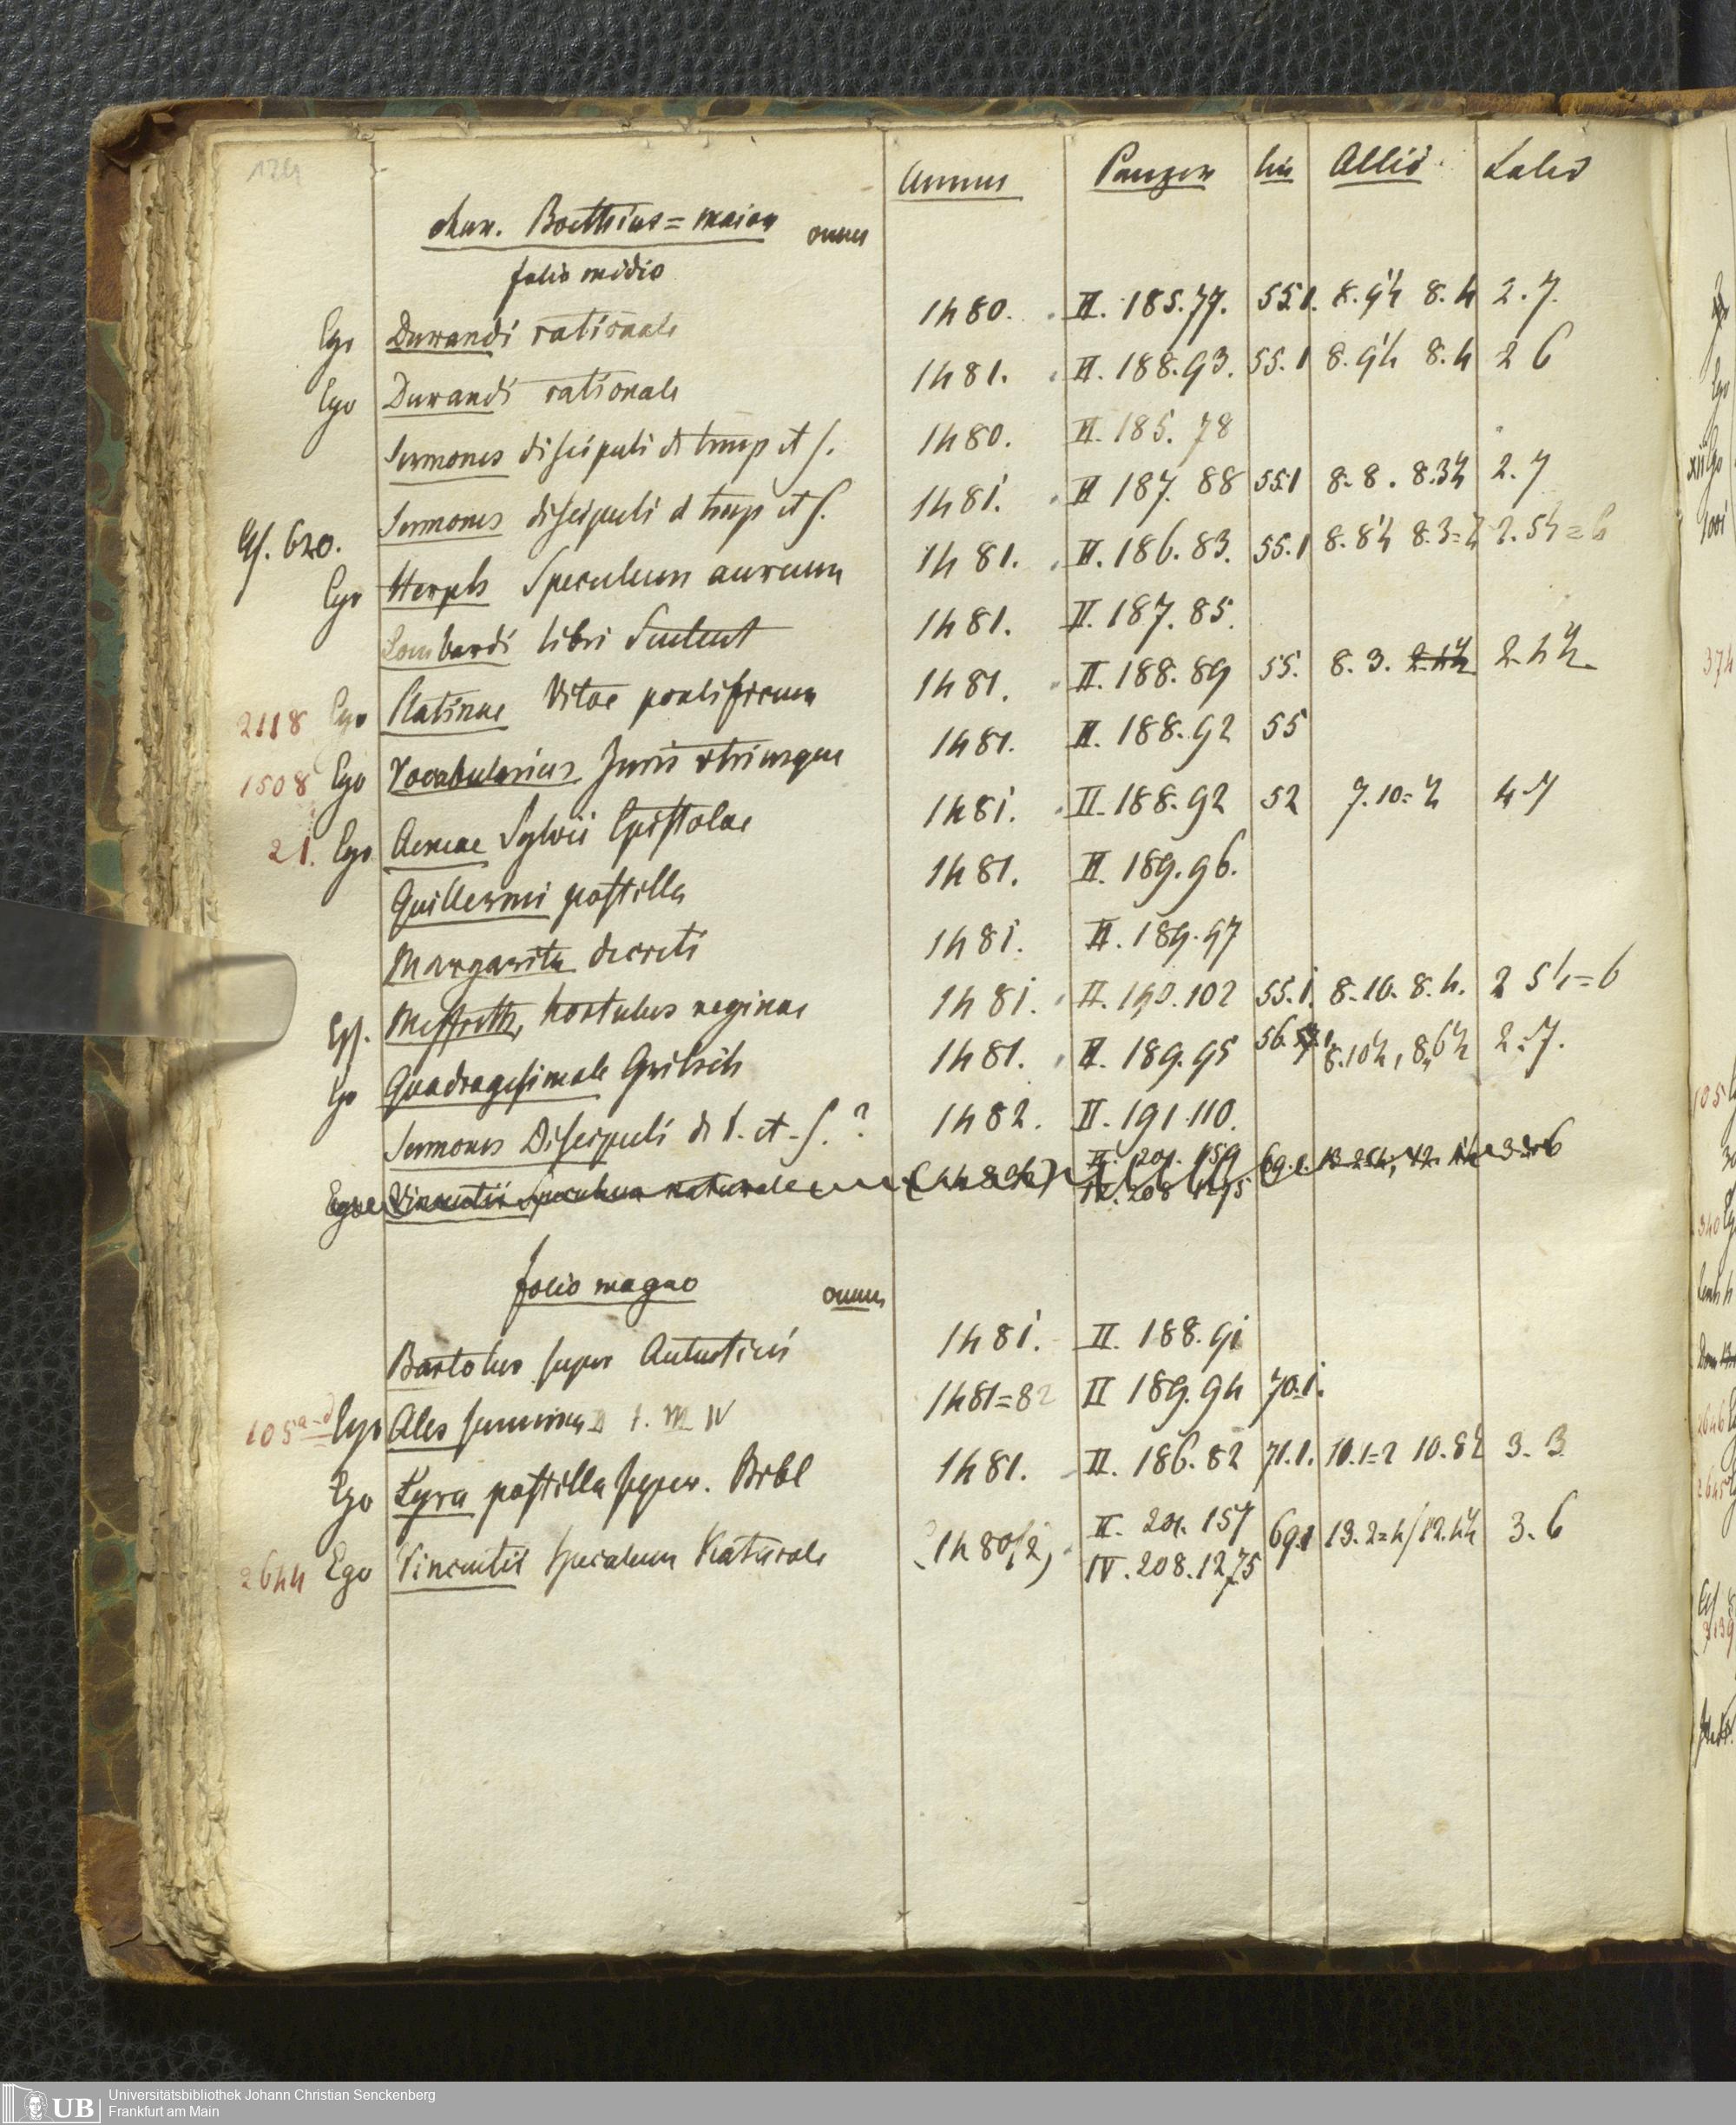 124
Annus Panzer lin Altit. Latit
char. Boethius = maior
folio medio
Ego Durandi rationale 1480. II. 185.77. 55.1. 8.9½ 8.4 2.7.
Ego Durandi rationale 1481. II. 188.93. 55.1 8.9½ 8.4 2 6
Sermones discipuli de temp et s. 1480. II. 185. 78
Sermones discipuli d temp et s. 1481. II 187. 88 55.1 8.8. 8.3½ 2.7
620.
Ego Herph Speculum aureum 1481. II. 186. 83. 55.1 8.8½
Lombardi libri Sentent 1481. II. 187. 85.
2118 Ego Platinae Vitae pontificum 1481. II. 188. 89 55. 8. 3.
1508 Ego Vocabularius Juris utriusque 1481. II. 188. 92 55
21. Ego Aeneae Sylvii Epistolae 1481. II. 188. 92 52 7.10= 4.7
Guillermi postilla 1481. II. 189. 96.
Margarita decreti 1481. II. 189. 97
Meffreth, hortulus reginae 1481. II. 190. 102 55.1. 8.10. 8.4. 2 5½=6
Ego Quadragesimale Gritsch 1481. II. 189. 95 56. 8.10½, 8,6½ 2.7.
Sermones Discipuli de t. et. s.? 1482. II. 191. 110.
Vincentii Speculum naturale
folio magno
Bartolus super Autenticis 1481. II. 188. 91
105 a-d Ego Ales summa 1481=82 II 189. 94 70.1.
Ego Lyra postilla super. Bibl 1481. II. 186. 82 71.1. 10.1=2 10.8½ 3. 3
2644 Ego Vincentii Speculum Naturale II. 201. 157 69.1 3. 6
IV. 208. 1275
UB
Universitätsbibliothek Johann Christian Senckenberg
Frankfurt am Main